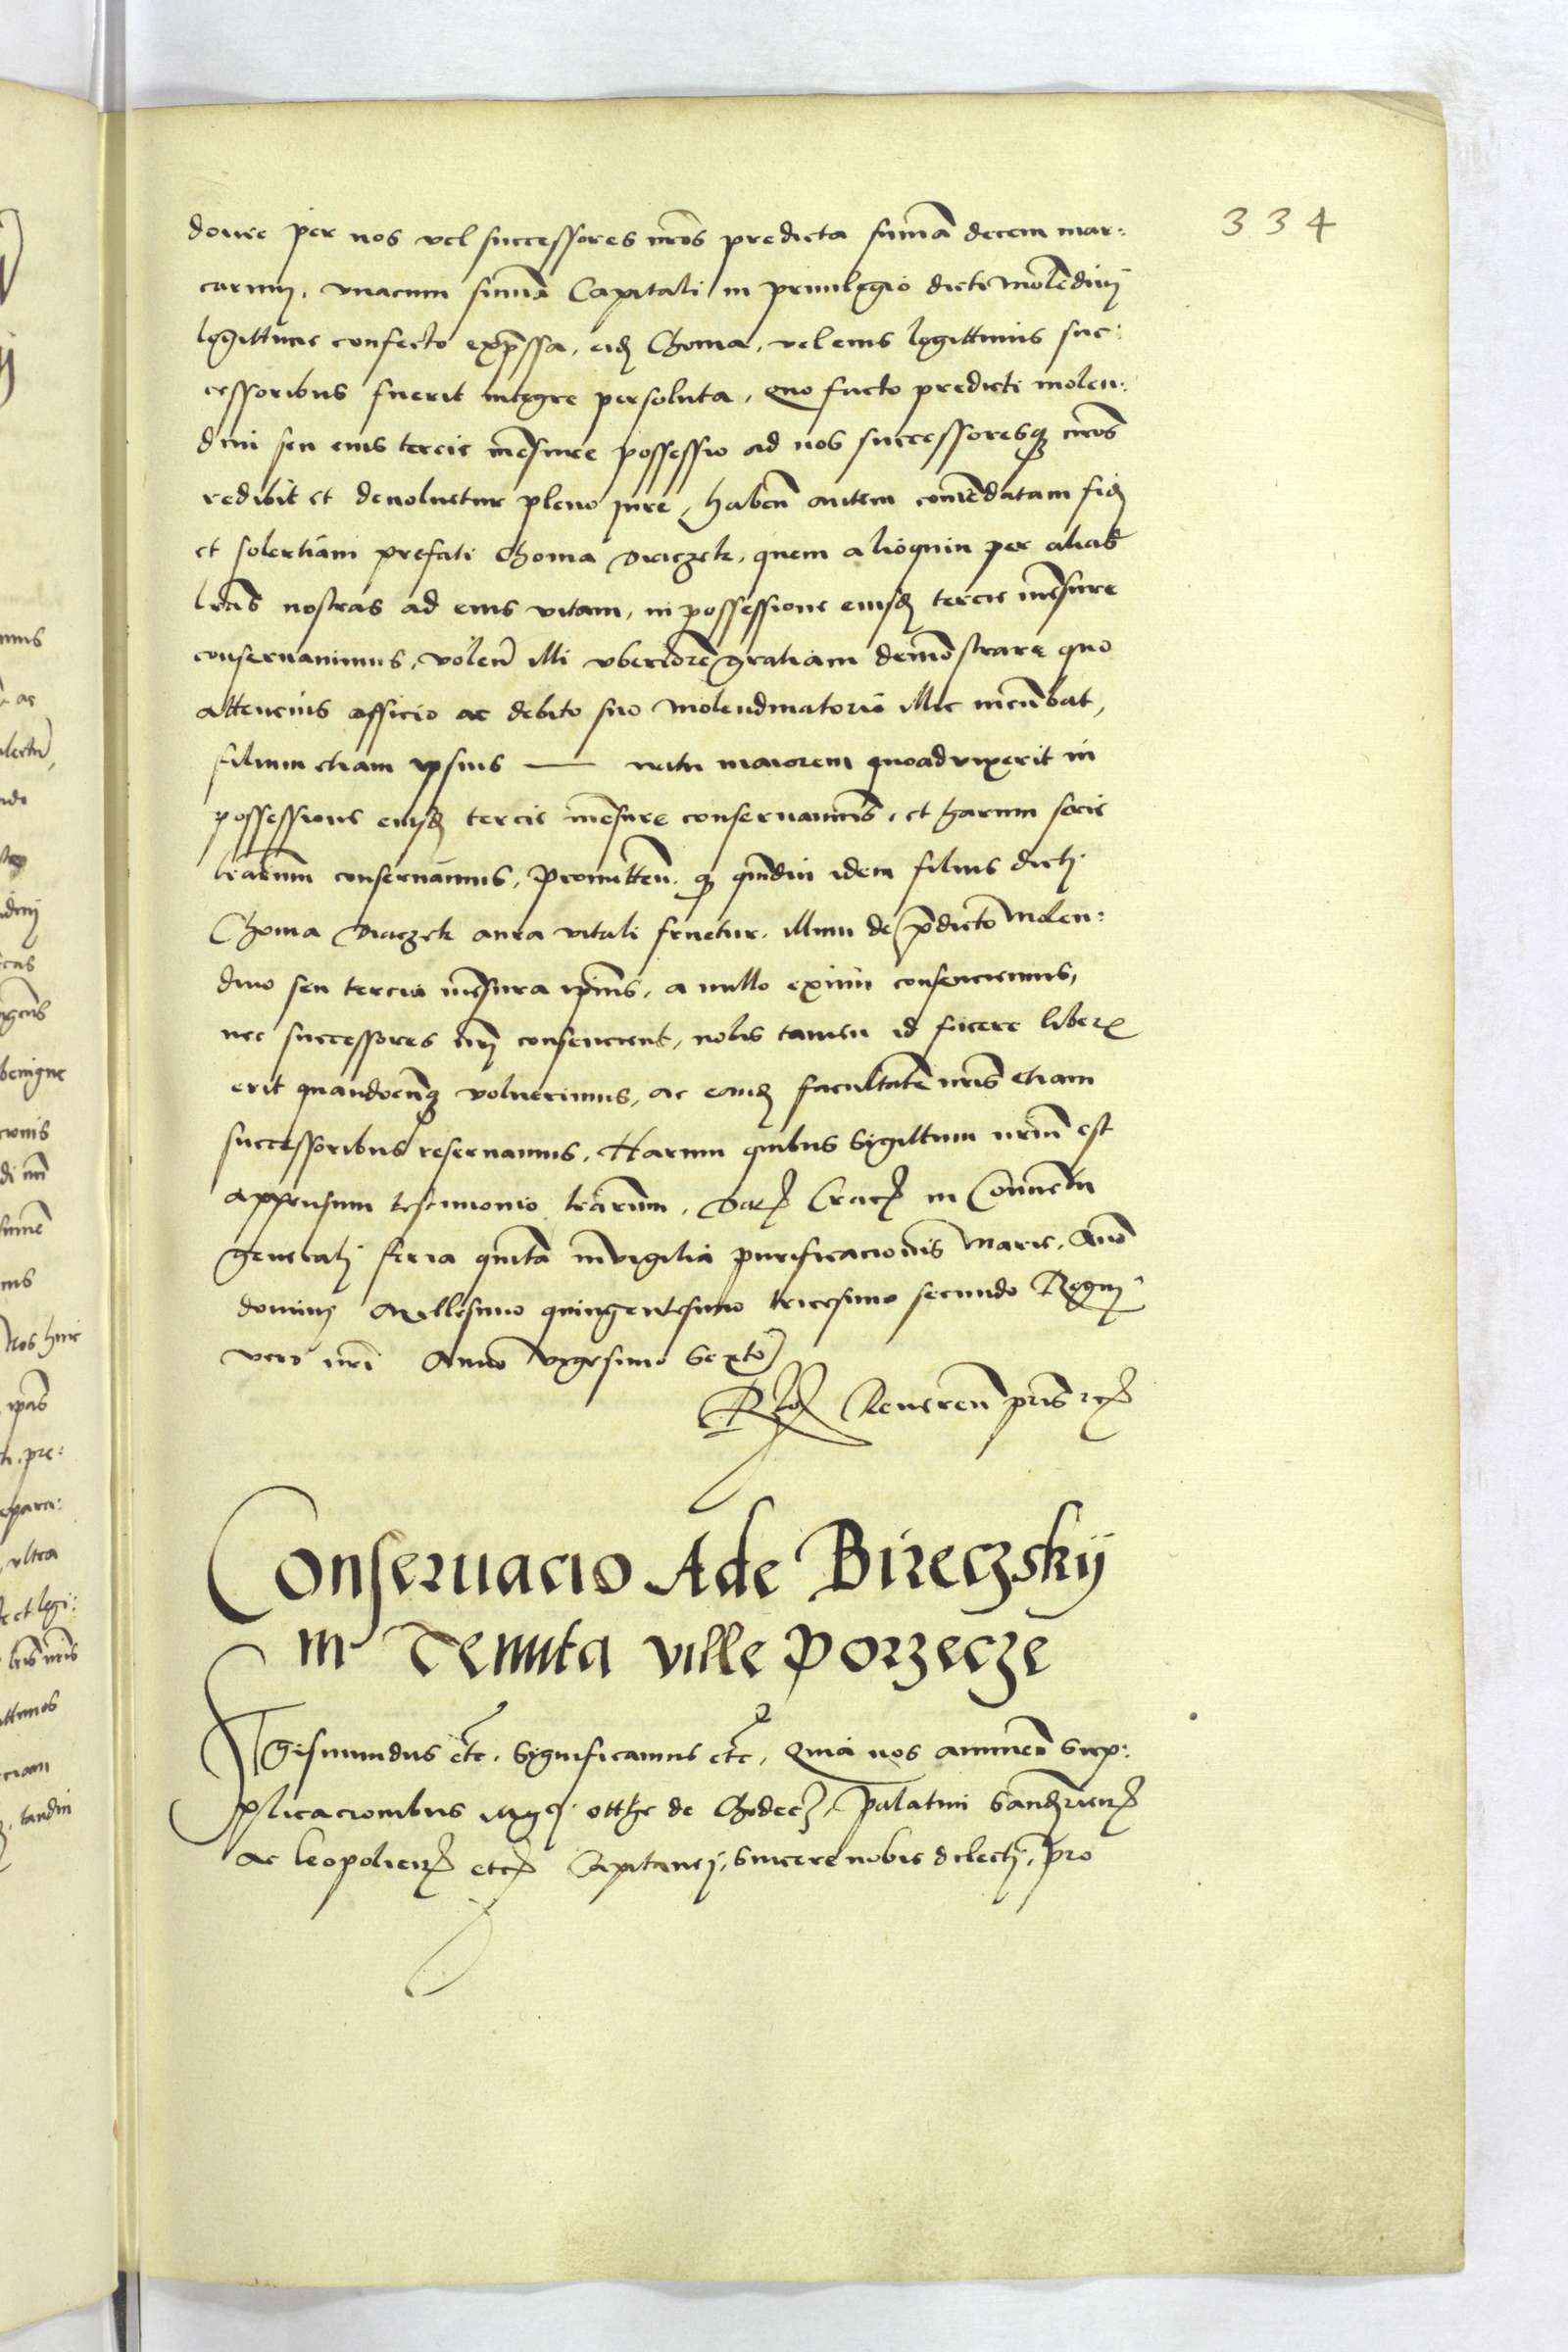 334
donec per nos vel successores nr̃os predicta summa decem mar:
carum, vnacum summa Capitali in priuilegio dicti molendinj
legittime confecto expressa, eidem Thoma, vel eius legittimis suc:
cessoribus fuerit integre persoluta, Quo facto predicti molen:
dini seu eius tercie mẽsure possessio ad nos successoresq nr̃os
redibit et deuoluetur pleno jure, habeñ autem com̃endatam fidem
et solertiam prefati Thoma quem alioquin per alias
lr̃as nostras ad eius vitam, in possessione eiusdem tercie mẽsure
conseruauimus, voleñ illi vberiorẽ gratiam demõstrare quo
attencius officio ac debito suo molendinatorio illic incũbat,
filium etiam ipsius — natu maiorem quoad vixerit in
possessione eiusdem tercie mẽsure conseruauimus, et harum serie
lr̃arum conseruamus, promitteñ. q quãdiu idem filius dicti
Thoma aura vitali fruetur, illum de p̃dicto molen:
dino seu tercia mẽsura ip̃ius, a nullo eximi consenciemus,
nec successores nr̃j consencient, nobis tamen id facere liber
erit quandocũq voluerimus, ac eandem facultatẽ nr̃is etiam
successoribus reseruamus, Harum quibus Sigillum nr̃um est
appensum testimonio lr̃arum, Dat Crac in Conuẽtu
generalj feria quinta in vigilia purificacionis Marie, Anno
dominj Millesimo quingentesimo tricesimo secundo Regnj
vero nr̃i Anno vigesimo Sexto
Rlo Reuereñ pr̃is etc

Conseruacio Ade Bireczskij
in Tenuta ville Porzecze
Sigismundus etc. Significamus etc, Quia nos annueñ Sup:
plicacionibus Mgcj Otthe de Chodecz, palatini Sandomirieñ
ac leopolieñ etc Capitanej, Sincere nobis dilectj, pro